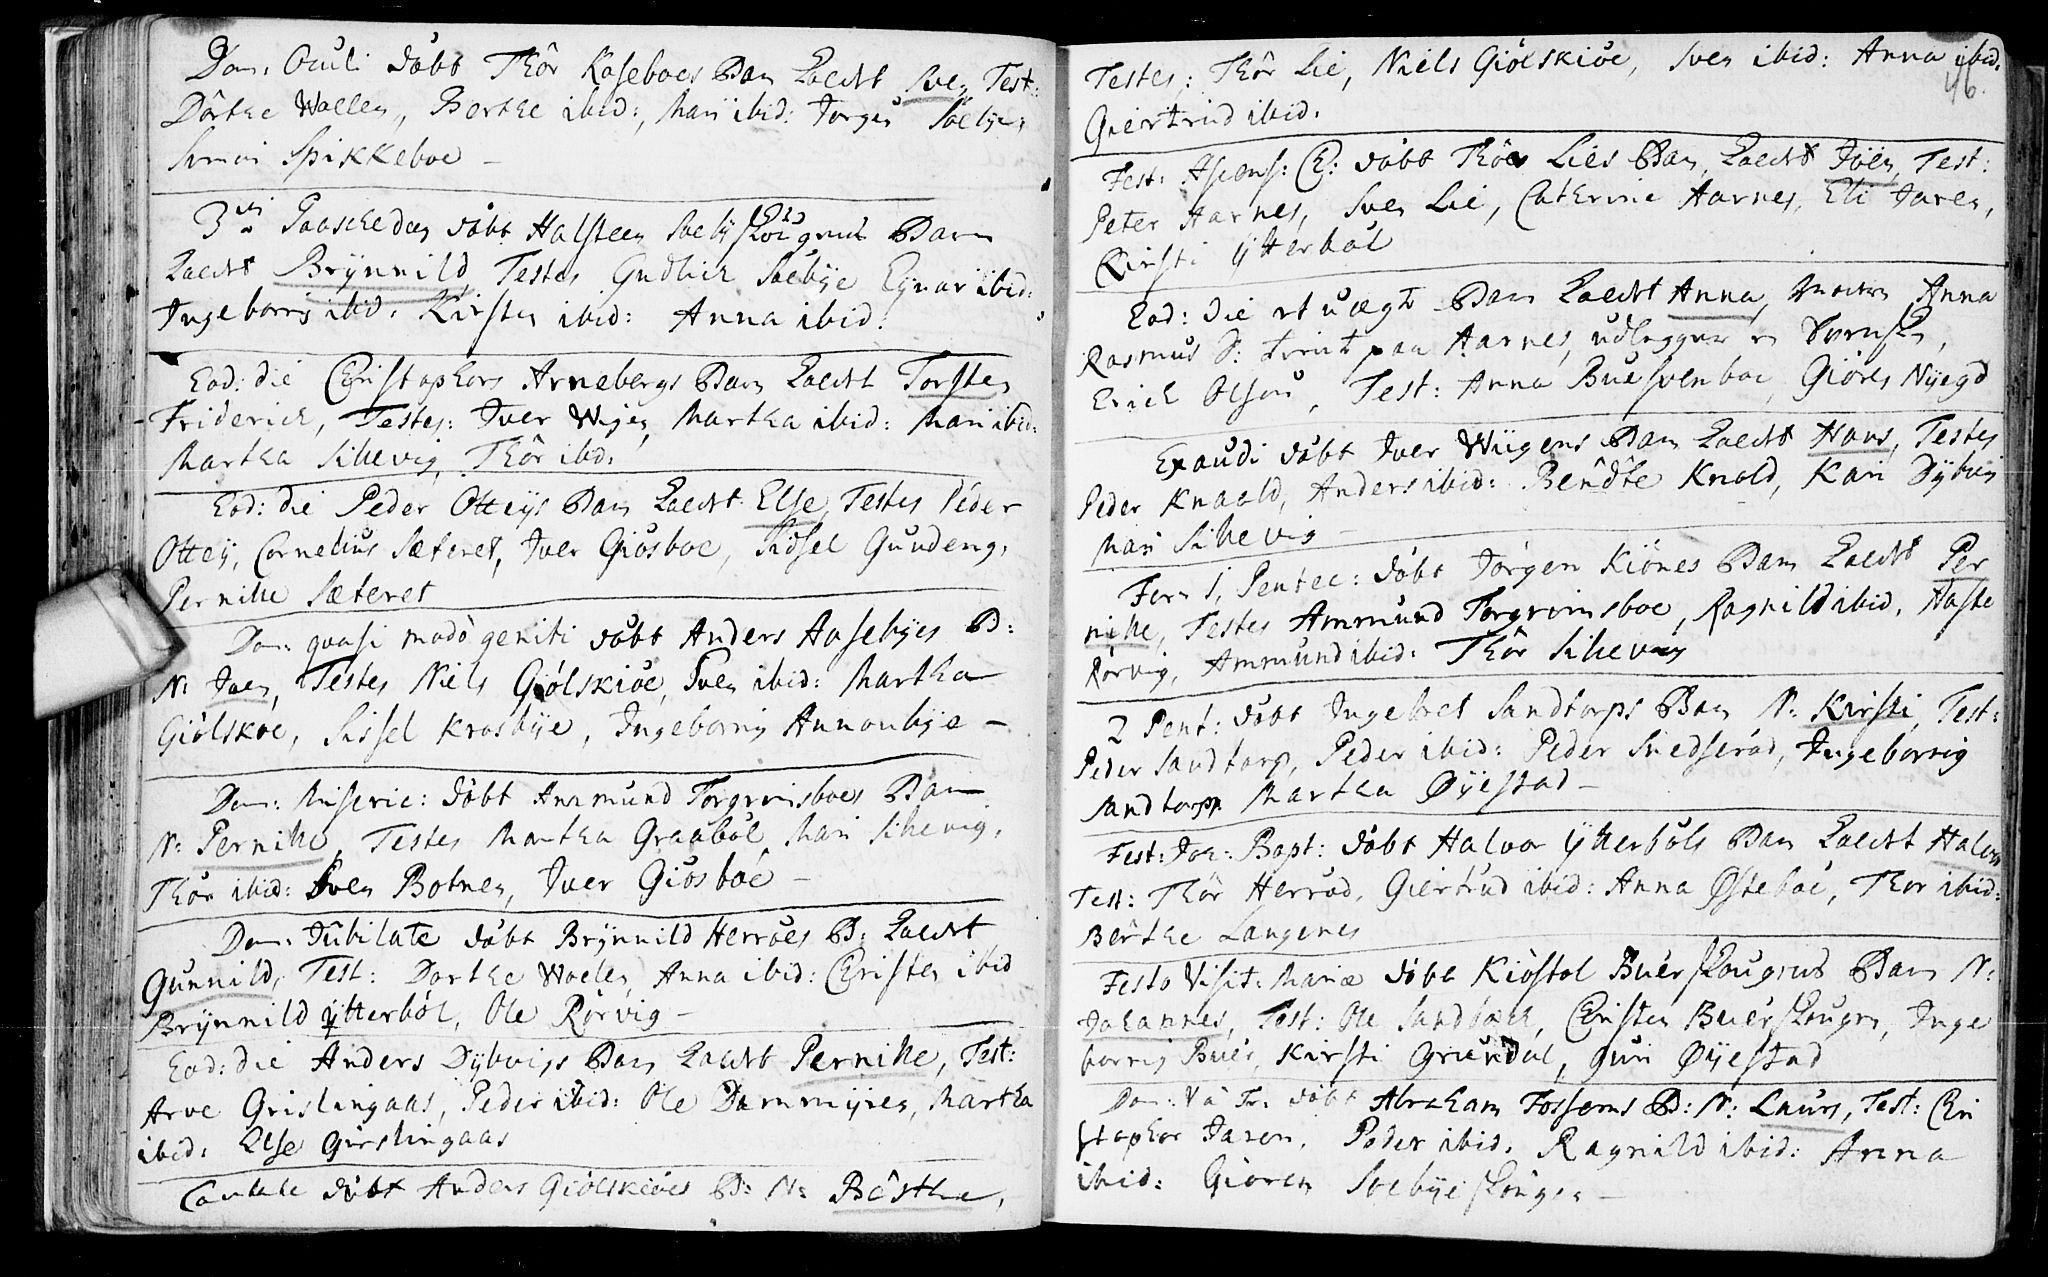 Dom: Oculi döbt Thôr Kaseboes Barn kaldt Sven, Test:
Dôrthe Waelen, Berthe ibid:, Mari ibid: Jorgen Soebye,
Simon Spikkeboe —
3die Paaschedag döbt Halsteen Soebyskougens Barn
kaldt Brÿnnild Testes Gudlich Soebye Eÿnar ibid:
Ingeborrig ibid: Kirsten ibid: Anna ibid:
Eod: die Christophers Arnebergs Barn kaldt Torsten
Friderich, Testes: Iver Wigen, Martha ibid: Mari ibid:
Martha Sikevig, Thôr ibid:
Eod: die Peder Otteÿs Barn kaldt Else, Testes Peder
Otteÿ, Cornelius Sæteret, Iver Giösboe, Sidsel Guudeng,
Pernike Sæteret
Dom: quasi modo geniti döbt Anders Aasebÿes B:
N: Iver, Testes Niels Giölskiöe, Sven ibid: Martha
Giölskoe, Sissel Krosbÿe, Ingeborrig Annonbÿe —
Dom: Miseric: döbt Ammund Torgrimsboes Barn
N: Pernike, Testes Martha Graaböl, Mari Sikevig,
Thôr ibid: Sven Botnen, Iver Giösböe —
Dom: Jubilate döbt Brÿnnild Herröes B: kaldt
Gunnild, Test: Dorthe Woelen, Anna ibid: Christen ibid
Brÿnnild ÿtterböl, Ole Rörvig —
Eod: die Anders Dÿbvigs Barn kaldt Pernike, Test:
Arve Grislingaas, Peder ibid: Ole Dammÿren, Martha
ibid: Else Grislingaas
Cantate döbt Anders Giölskiöes B: N: Bêrthe,
46.
Testes: Thôr Lie, Niels Giölskiöe, Sven ibid: Anna ibid.
Giertrud ibid.
Fest: Ascens: C: döbt Thôr Lies Barn, kaldt Iver, Test:
Peter Aarnes, Sven Lie, Catherine Aarnes, Eli Jaren,
Kirsti ÿtterböl
Eod: die et uægt Barn kaldt Anna, Moeren Anna
Rasmus D: tient paa Aarnes, udlegger en
Erich Olsön, Test: Anna Buesvenboe, Giören Nÿegd
Exaudi döbt Iver Wiigens Barn kaldt Hans, Testes
Peder Knaald, Anders ibid: Bendte Knold, Kari Dÿbvig
Mari Sikevig —
Fer: 1, Pentec: döbt Jörgen Kiönes Barn kaldt Per
nike, Testes Ammund Torgrimsboe, Ragnild ibid. Haste
Rörvig, Ammund ibid: Thôr Sikevig
2 Pent: döbt Ingebret Sandtorps Barn N: Kirsti, Test:
Peder Sandtorp, Peder ibid: Peder Snedseröd, Ingeborrig
Sandtorp Martha Øÿestad —
Fest: Joh: Bapt: döbt Halvor ÿtterböls Barn kaldt Halvor
Test: Thôr Herröd, Giertrud ibid: Anna Østeböe, Thor ibid:
Bêrthe Langenes
Festo Visit: Mariæ döbt Kiöstol Buerskougens Barn N:
Johannes, Test: Ole Sandbæch, Christen Buerskougen, Inge
borrig Buer, Kirsti Grundal, Guri Øÿestad
Dom: V a Tr: döbt Abraham Fossems B: N: Laurs, Test: Chri
stopher Jaren, Peder ibid. Ragnild ibid: Anna
ibid: Giören Soebÿeskougen —